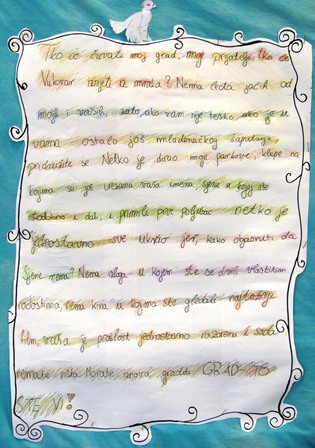 Tko će čuvati moj grad, moje prijatelje, tko će
Vukovar iznijeti iz mraka? Nema četa jačih od
mojih i vaših, zato, ako vam nije teško, ako je u
vama ostalo još mladenačkog šaputanja,
pridružite se. Netko je dirao moje parkove, klupe na
kojima su još urezana vaša imena, sjenu u kojoj ste
istodobno i dali, i primili prvi poljubac netko je
jednostavno sve ukrao jer, kako objasniti da
sjene nema? Nema izloga u kojem ste se divili vlastitim
radostima, nema kina u kojem ste gledali najtužniji
film, vaša je prošlost jednostavno razorena i sada
nemate ništa. Morate iznova graditi. GRAD - TO
STE VI!